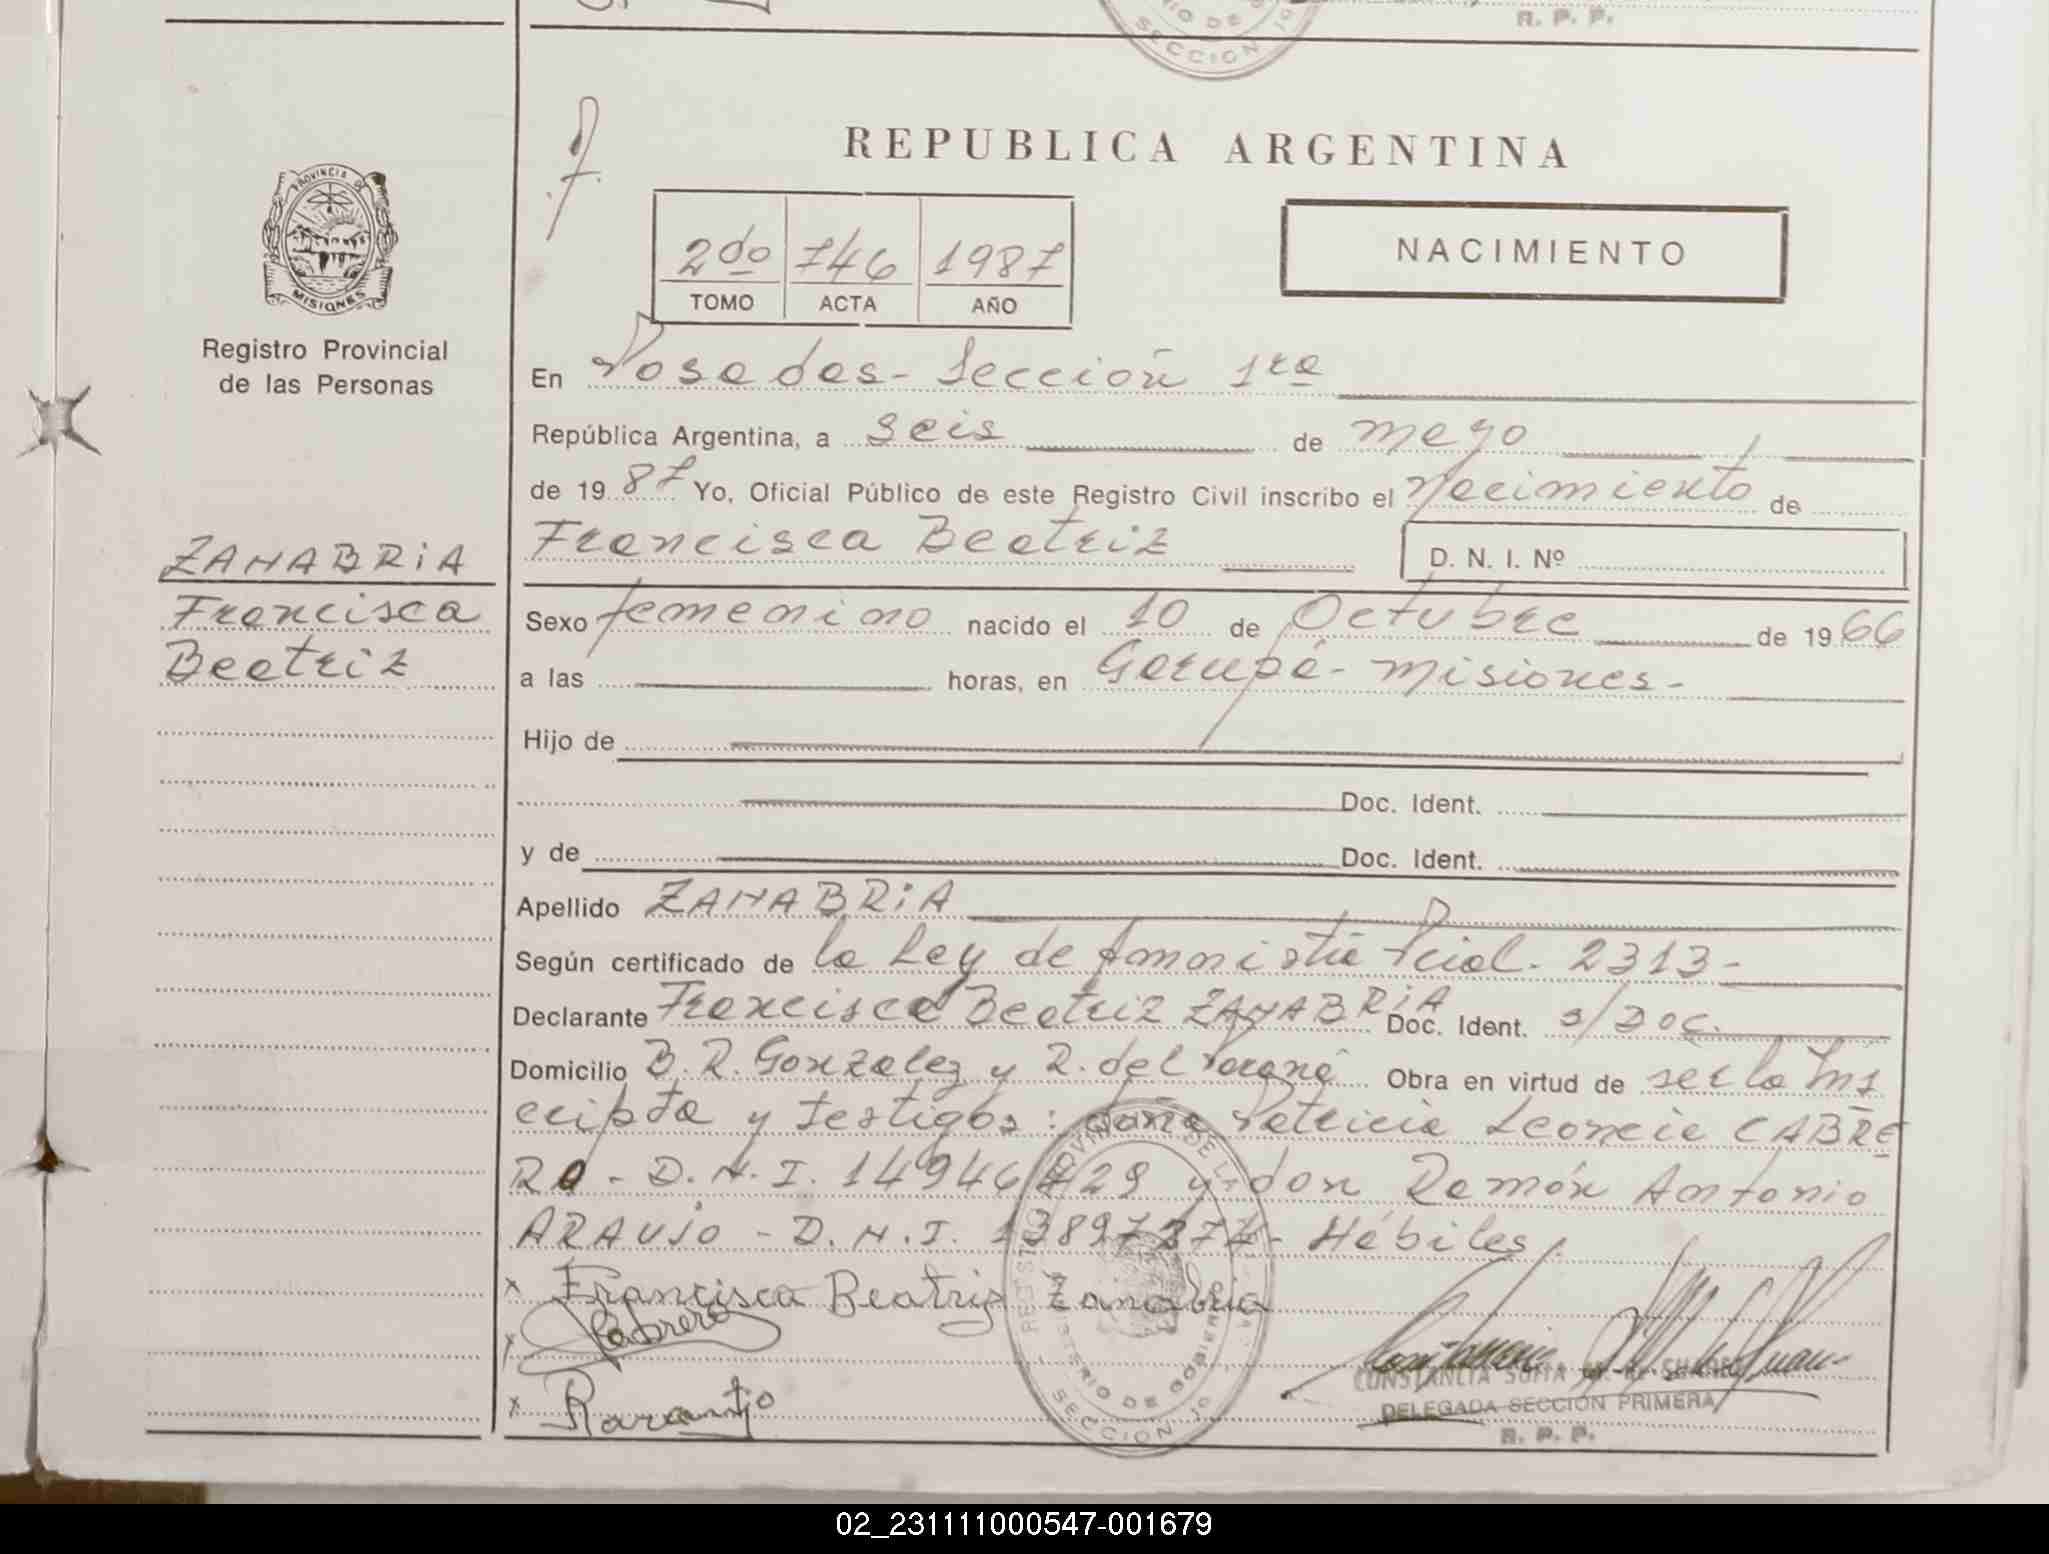 R. P. P.
SECCION 1º
REPUBLICA ARGENTINA
PROVINCIA DE
MISIONES
2do 746 1987
TOMO ACTA AÑO
NACIMIENTO
Registro Provincial
de las Personas
En Posadas - Sección 1ra
República Argentina, a seis de mayo
de 1987 Yo, Oficial Público de este Registro Civil inscribo el Nacimiento de
Francisca Beatriz D. N. I. Nº
ZANABRiA
Francisca
Beatriz
Sexo femenino nacido el 10 de Octubre de 1966
a las horas, en Garupá - Misiones -
Hijo de
Doc. Ident.
y de Doc. Ident.
Apellido ZANABRiA
Según certificado de la Ley de Amnistía Pcial. 2313 -
Declarante Francisca Beatriz ZANABRiA Doc. Ident. s/Doc.
Domicilio B. R. Gonzalez y R. del Paraná Obra en virtud de ser la Ins
cripta y testigos: doña Patricia Leoncia CABRE
RA - D. N. I. 14946429 y don Ramón Antonio
ARAUJO - D. N. I. - Hábiles.
x Francisca Beatriz Zanabria
Cabrera
x Raraujo
MINISTERIO DE GOBIERNO
SECCION 1º
CONSTANCIA SOFIA DE SUAREZ
DELEGADA SECCION PRIMERA
R. P. P.
02_231111000547-001679